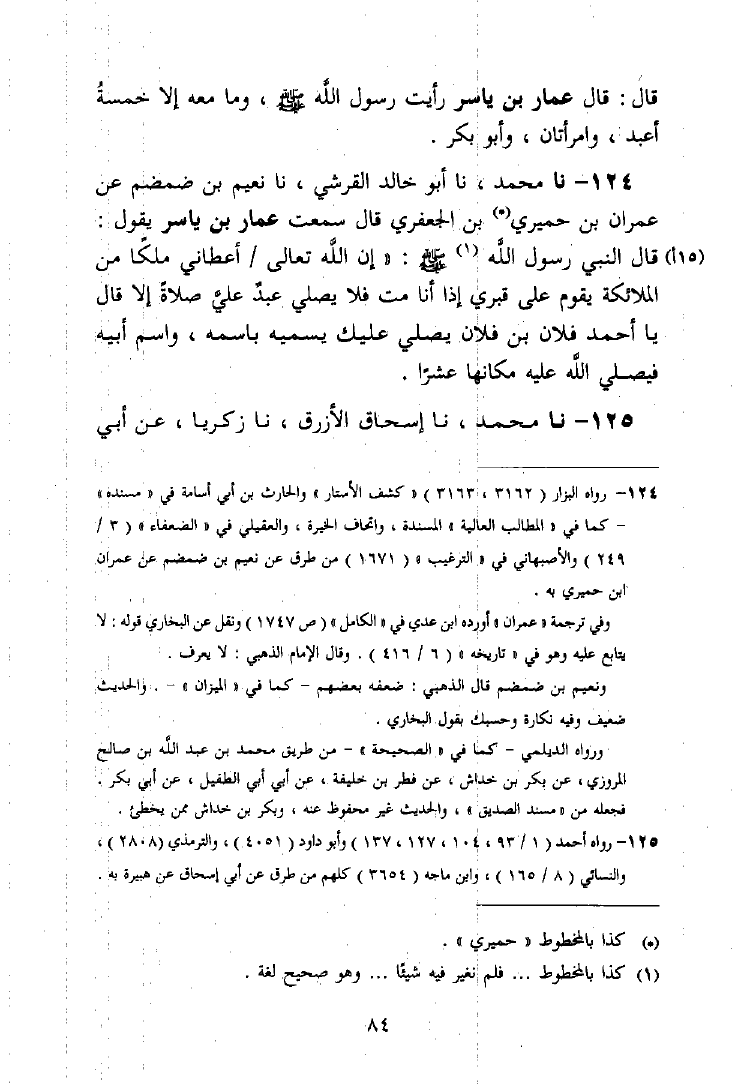 قال : قال عمار بن ياسر رأيت رسول اللَّه ﷺ ، وما معه إلا خمسةُ
أعبد ، وامرأتان ، وأبو بكر .
١٢٤- نا محمد ، نا أبو خالد القرشي ، نا نعيم بن ضمضم عن
عمران بن حميري(*) بن الجعفري قال سمعت عمار بن ياسر يقول :
(١٥أ) قال النبي رسول اللَّه (١) ﷺ : « إن اللَّه تعالى / أعطاني ملكًا من
الملائكة يقوم على قبري إذا أنا مت فلا يصلي عبدٌ عليَّ صلاةً إلا قال
يا أحمد فلان بن فلان يصلي عليك يسميه باسمه ، واسم أبيه
فيصلي اللَّه عليه مكانها عشرًا .
١٢٥- نا محمد ، نا إسحاق الأزرق ، نا زكريا ، عن أبي
١٢٤- رواه البزار ( ٣١٦٢ ، ٣١٦٣ ) « كشف الأستار » والحارث بن أبي أسامة في « مسنده »
- كما في « المطالب العالية » المسندة ، واتحاف الخيرة ، والعقيلي في « الضعفاء » ( ٣ /
٢٤٩ ) والأصبهاني في « الترغيب » ( ١٦٧١ ) من طرق عن نعيم بن ضمضم عن عمران
ابن حميري به .
وفي ترجمة « عمران » أورده ابن عدي في « الكامل » ( ص ١٧٤٧ ) ونقل عن البخاري قوله : لا
يتابع عليه وهو في « تاريخه » ( ٦ / ٤١٦ ) . وقال الإمام الذهبي : لا يعرف .
ونعيم بن ضمضم قال الذهبي : ضعفه بعضهم - كما في « الميزان » - . والحديث
ضعيف وفيه نكارة وحسبك بقول البخاري .
ورواه الديلمي - كما في « الصحيحة » - من طريق محمد بن عبد اللَّه بن صالح
المروزي ، عن بكر بن خداش ، عن فطر بن خليفة ، عن أبي أبي الطفيل ، عن أبي بكر .
فجعله من « مسند الصديق » ، والحديث غير محفوظ عنه ، وبكر بن خداش ممن يخطئ .
١٢٥- رواه أحمد ( ١ / ٩٣ ، ١٠٤ ، ١٢٧ ، ١٣٧ ) وأبو داود ( ٤٠٥١ ) ، والترمذي (٢٨٠٨ ) ،
والنسائي ( ٨ / ١٦٥ ) ، وابن ماجه ( ٣٦٥٤ ) كلهم من طرق عن أبي إسحاق عن هبيرة به .
(*) كذا بالمخطوط « حميري » .
(١) كذا بالمخطوط ... فلم نغير فيه شيئًا ... وهو صحيح لغة .
٨٤